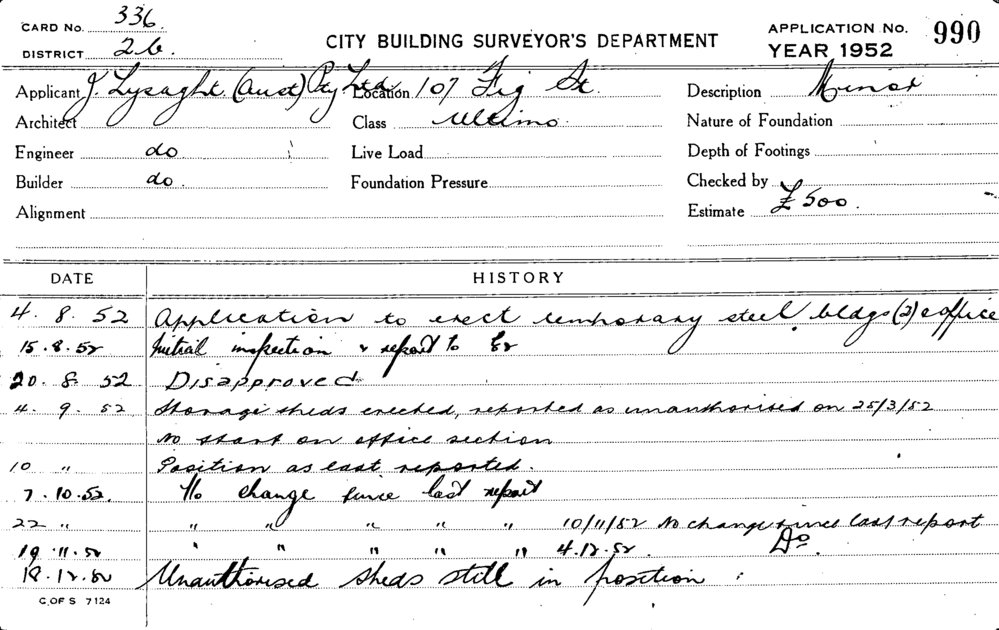 CARD No. 336.
DISTRICT 26.
CITY BUILDING SURVEYOR'S DEPARTMENT
APPLICATION No. 990
YEAR 1952
Applicant J. Lysaght (Aust) Pty Ltd Location 107 Fig St. Description Minor
Architect Class Ultimo. Nature of Foundation
Engineer do Live Load Depth of Footings
Builder do. Foundation Pressure Checked by
Alignment Estimate £500.
DATE HISTORY
4. 8. 52 Application to erect temporary steel bldgs (2) & office
15.8.52 Initial inspection & report to
20. 8. 52 Disapproved
4. 9. 52 Storage sheds erected, reported as unauthorised on 25/3/52
No start on office section
10 " Position as last reported.
7.10.52. No change since last report
22 " " " " " " 10/11/52 No change since last report
19.11.52 " " " " " 4.12.52. Do.
18.12.52 Unauthorised sheds still in position :
C. OF S 7124